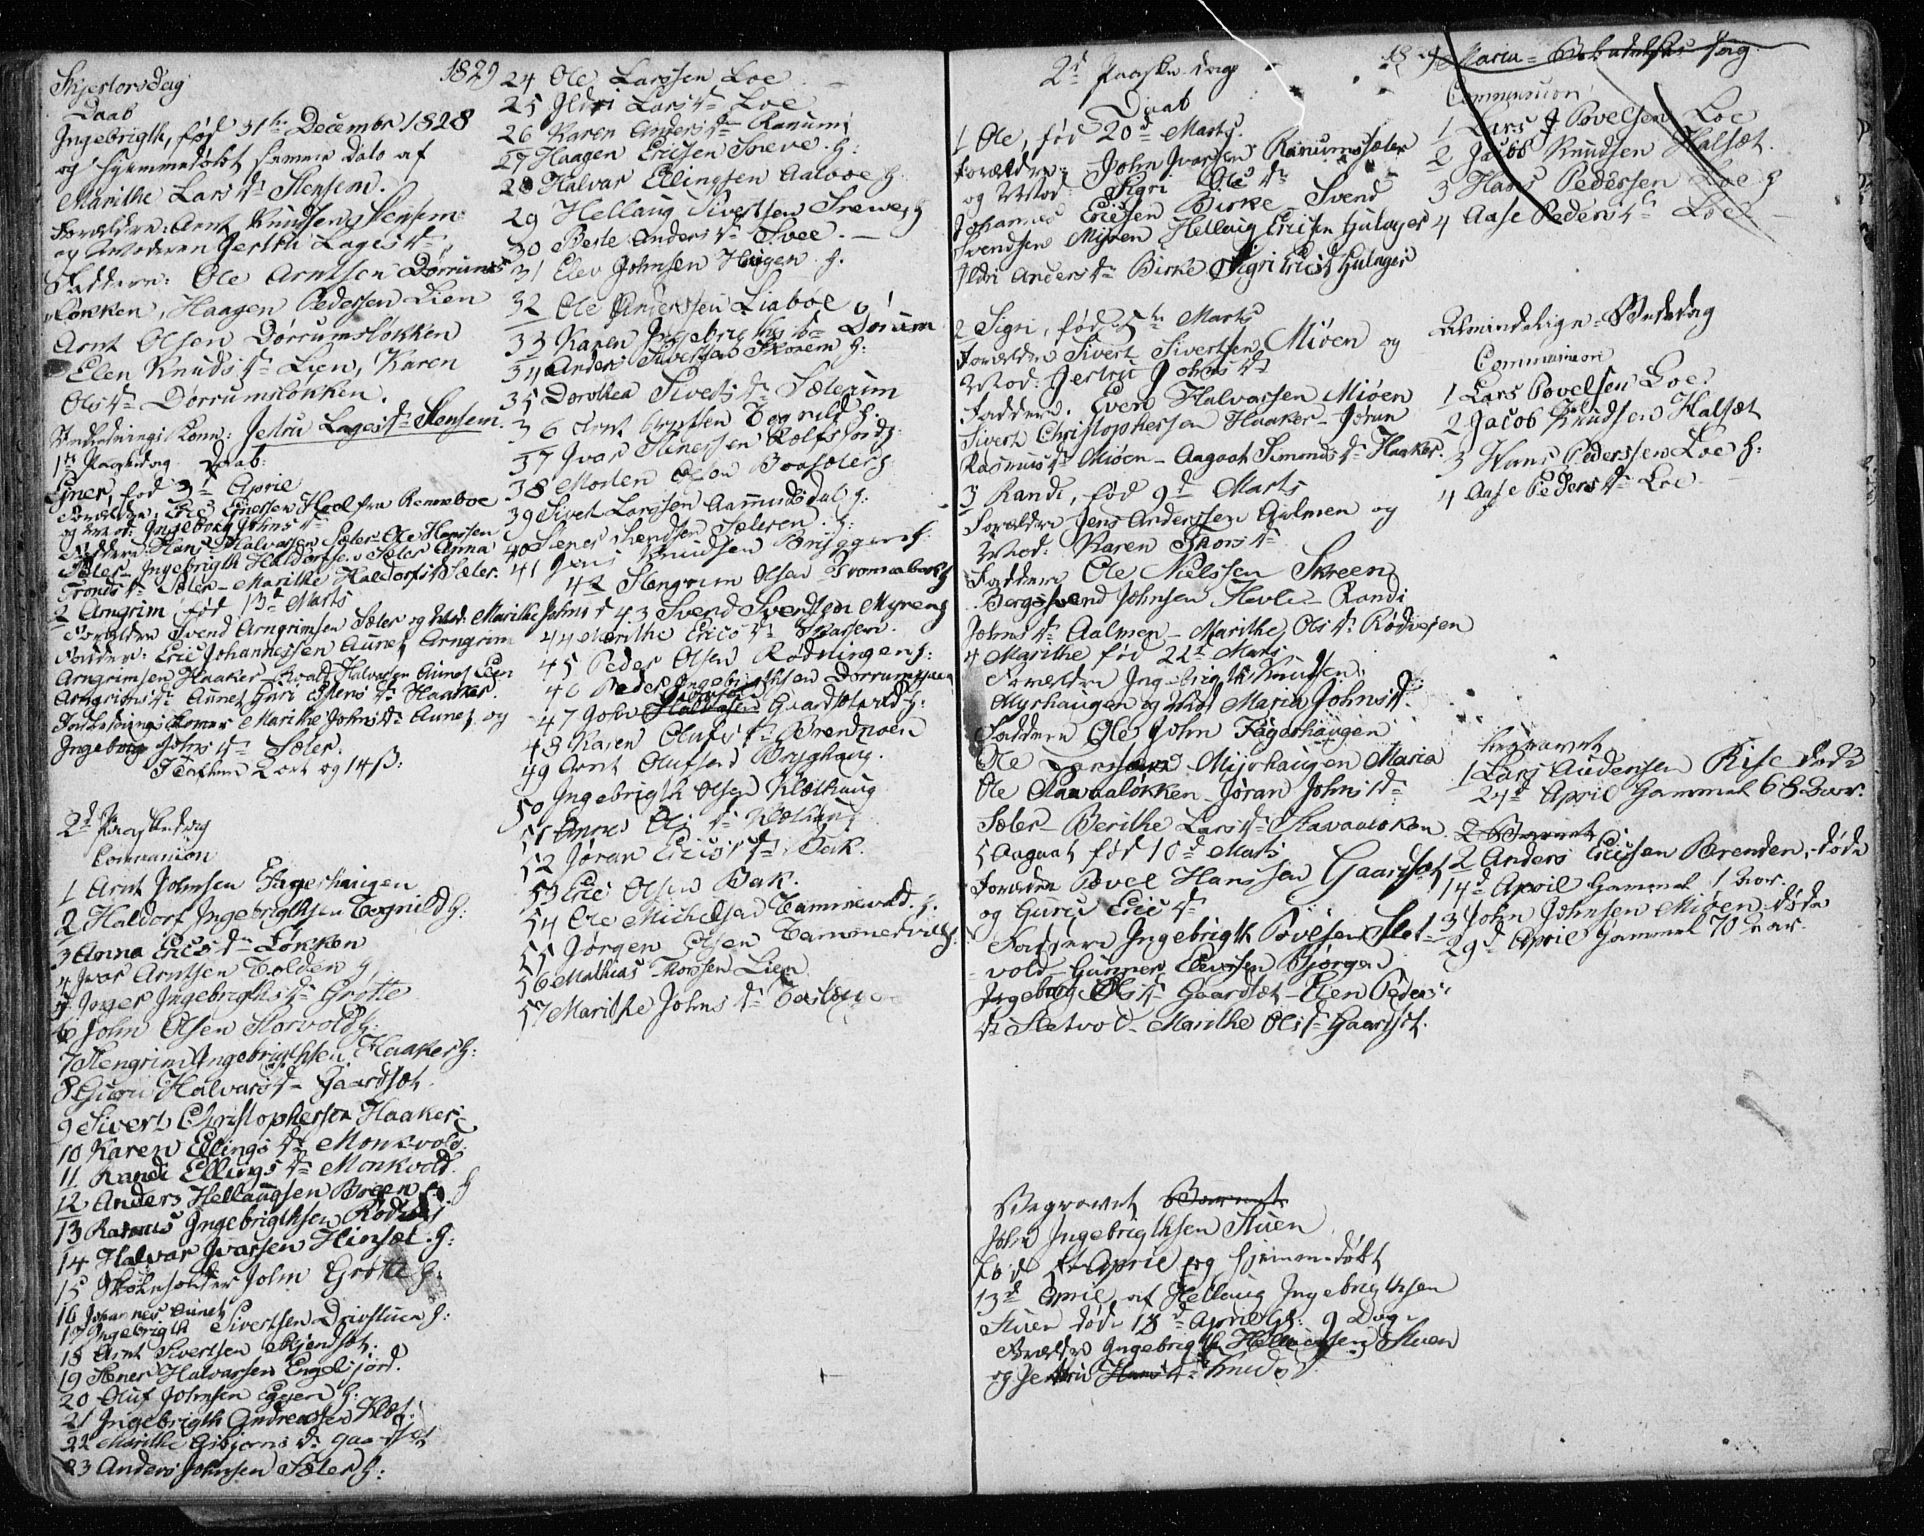 1829
Skjertorsdag
Daab
Ingebrigth, fød 31te Decembr 1828
og hjemmedøbt samme Dato af
Marithe Larsdr Stensem.
Forældre: Arnt Knudsen Stensem
og Moderen Jertru Lagesdr
Faddere: Ole Arntsen Dørrums
Løkken, Haagen Pedersen Lien
Arnt Olsen Dørrumsløkken
Elen Knudsdr Lien, Karen
Olsdr Dørrumsløkken.
Indledningskone: Jertru Lagesdr Stensem.
1te Paaskedag Daab:
Ener, fød 3d April
Forældre, Eric Enersen Hoel fra Renneboe
og Mod: Ingeborg Johnsdr
Faddere Hans Halvarsen Sæter Ole Hanssen
Sæter, Ingebrigth Haldorsen Sæter Anna
Tronsdr Sæter - Marithe Haldorsdr Sæter.
2 Arngrim fød 13d Marts
Forældre Svend Arngrimsen Sæter og Mod: Marithe Johnsd
Faddere: Eric Johannessen Aunet Arngrim
Arngrimsen Haaker - Roald Halvarsen Aunet
Arngrimsdr Aunet Guri Estensdr Haaker.
Indledningskoner Marithe Johnsdr Aunet og
Ingeborg Johnsdr Sæter.
Tavlen 2 ort og 14 ß:
2d Paaskedag
Communion
1 Arnt Johnsen Fagerhaugen
2 Haldorf Ingebrigthsen Tognild G:
3 Anna Ericsdr Løkken
4 Ivar Arntsen Tolden
5 Inger Ingebrigthsdr Grøtte
6 John Olsen Storvold G:
7 Stengrim Ingebrigthsen Haaker G:
8 Guru Halvarsdr Gaardsæt
9 Sivert Christophersen Haaker
10 Karen Ellingsdr Monkvold
11 Randi Ellingsdr Monkvold.
12 Anders Hellaugsen Brøen
13 Rasmus Ingebrigthsen
14 Halvar Ivarsen Hinsæt. G:
15 Skoleholder John Grøtte G:
16 Johannes Aunet
17 Ingebrigth Sivertsen Drivstuen G:
18 Arnt Sivertsen Skjendsøt.
19 Stener Halvarsen Engelsjord.
20 Oluf Johnsen G:
21 Ingebrigth Andreassen Klæt.
22 Marithe Asbjørnsdr Gaardsæt
23 Anders Johnsen Sæter G:
24 Ole Larssen Loe
25 Ildri Larsdr Loe
26 Karen Andersdr Ranum
27 Haagen Ericsen Sneve. G:
28 Halvar Ellingsen Aalboe G.
29 Hellaug Sivertsen
30 Berte Andersdr Svee.
31 Elev Johnsen Haugen. G.
32 Ole Anderssen Liaboe
33 Karen Ingebrigthsdr Dørum
34 Anders Sivertsen Skorem G:
35 Dorothea Sivertsdr Sæterum
36 Arnt Tognild G.
37 Ivar Stenersen
38 Morten Olsen
39 Sivert Larssen Aamundsdal G.
40 Svendsen Sæteren. G:
41 Jens Knudsen Bryggen G:
42 Stengrim Olsen
43 Svend Svendsen Myren G
44 Marithe Ericsdr
45 Peder Olsen Rødningen G:
46 Peder Ingebrigthsen Dørrumsgaar
47 John Gaardsetvold G:
48 Karen Olufsdr Brendmoen
49 Arnt Olufsen Brighaug.
50 Ingebrigth Olsen Kløthaug
51 Anne Olsdr
52 Jøran Ericsdr Bak.
53 Eric Olsen Bak.
54 Ole Michelsen Tammesvold. G.
55 Jørgen Olsen
56 Mathias Thorsen Lien
57 Marithe Johnsdr
2d Paaskedag
Daab
1 Ole, fød 20d Marts.
Forældre: John Ivarsen Ranumssæter
og Mod. Sigri Olsdr
Johannes Ericsen Birke - Svend
Svendsen Myren Hellaug Ericsen Gulager
Ildri Andersdr Birke Sigri Ericsd Gulager
2 Sigri, fød 5te Marts
Forældre Sivert Sivertsen Mjøen og
Mod: Jertru Johnsdr
Faddere. Even Halvarsen Mjøen
Sivert Christophersen Haaker - Jøran
Rasmusdr Mjøen - Aagaat Simonsdr Haaker.
3 Randi, fød 9d Marts
Forældre Jens Anderssen Aalmen og
Mod: Karen Thorsdr
Faddere Ole Nielssen Skreen
Bergsvend Johnsen Hevle - Randi
Johnsdr Aalmen - Marithe Olsdr Rødvejen
4 Marithe fød 22d Marts
Forældre Ingebrigth Knudsen
Myrhaugen og Mod Maria Johnsd.
Faddere Ole John Fagerhaugen
Ole Myrhaugen Maria
Ole Johnsdr
Sæter - Berithe Larsdr
5 Aagaat fød 10d Marts
Forældre Povel Hanssen Gaardsæt
og Guru Ericsdr
Faddere Ingebrigth Povelsen Slet-
vold - Gunner Bjørgen
Ingeborg Olsdr Gaardsæt - Elen Peders
dr Sletvold - Marithe Olsdr Gaardsæt.
Begravet
John Ingebrigthsen Stuen
fød April og hjemmedøbt
13d April af Hellaug Ingebrigthsen
Stuen døde 18d April Gl: 9 Dage
Forældre Ingebrigth Stuen
og Jertru Knudsd
1829 Maria Bebudelses Dag
Communion
1 Lars Povelsen Loe
2 Jacob Knudsen Halsæt.
3 Hans Pedersen Loe G
4 Aase Pedersdr Loe
Almindelige Bededag
Communion
1 Lars Povelsen Loe.
2 Jacob Knudsen Halsæt
3 Hans Pederssen Loe G:
4 Aase Pedersdr Loe
Begravet
1 Lars Audensen Rise døde
24d April Gammel 68 Aar.
2 Anders Ericsen Brenden, døde
14d April Gammel 1 Aar.
3 John Johnsen Mjøen døde
29d April Gammel 70 Aar.